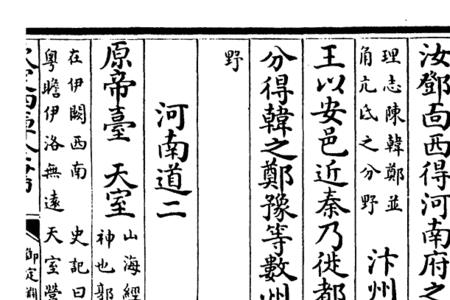 汝鄧靣西得河南府之
理志陳韓鄭並
角亢氐之分野
汴州
王以安邑近秦乃徙都
分得韓之鄭豫等數州
野
河南道二
原帝臺 天室
山海經
神也郭
在伊闕西南 史記曰
粵瞻伊洛無遠天室營
御定淵